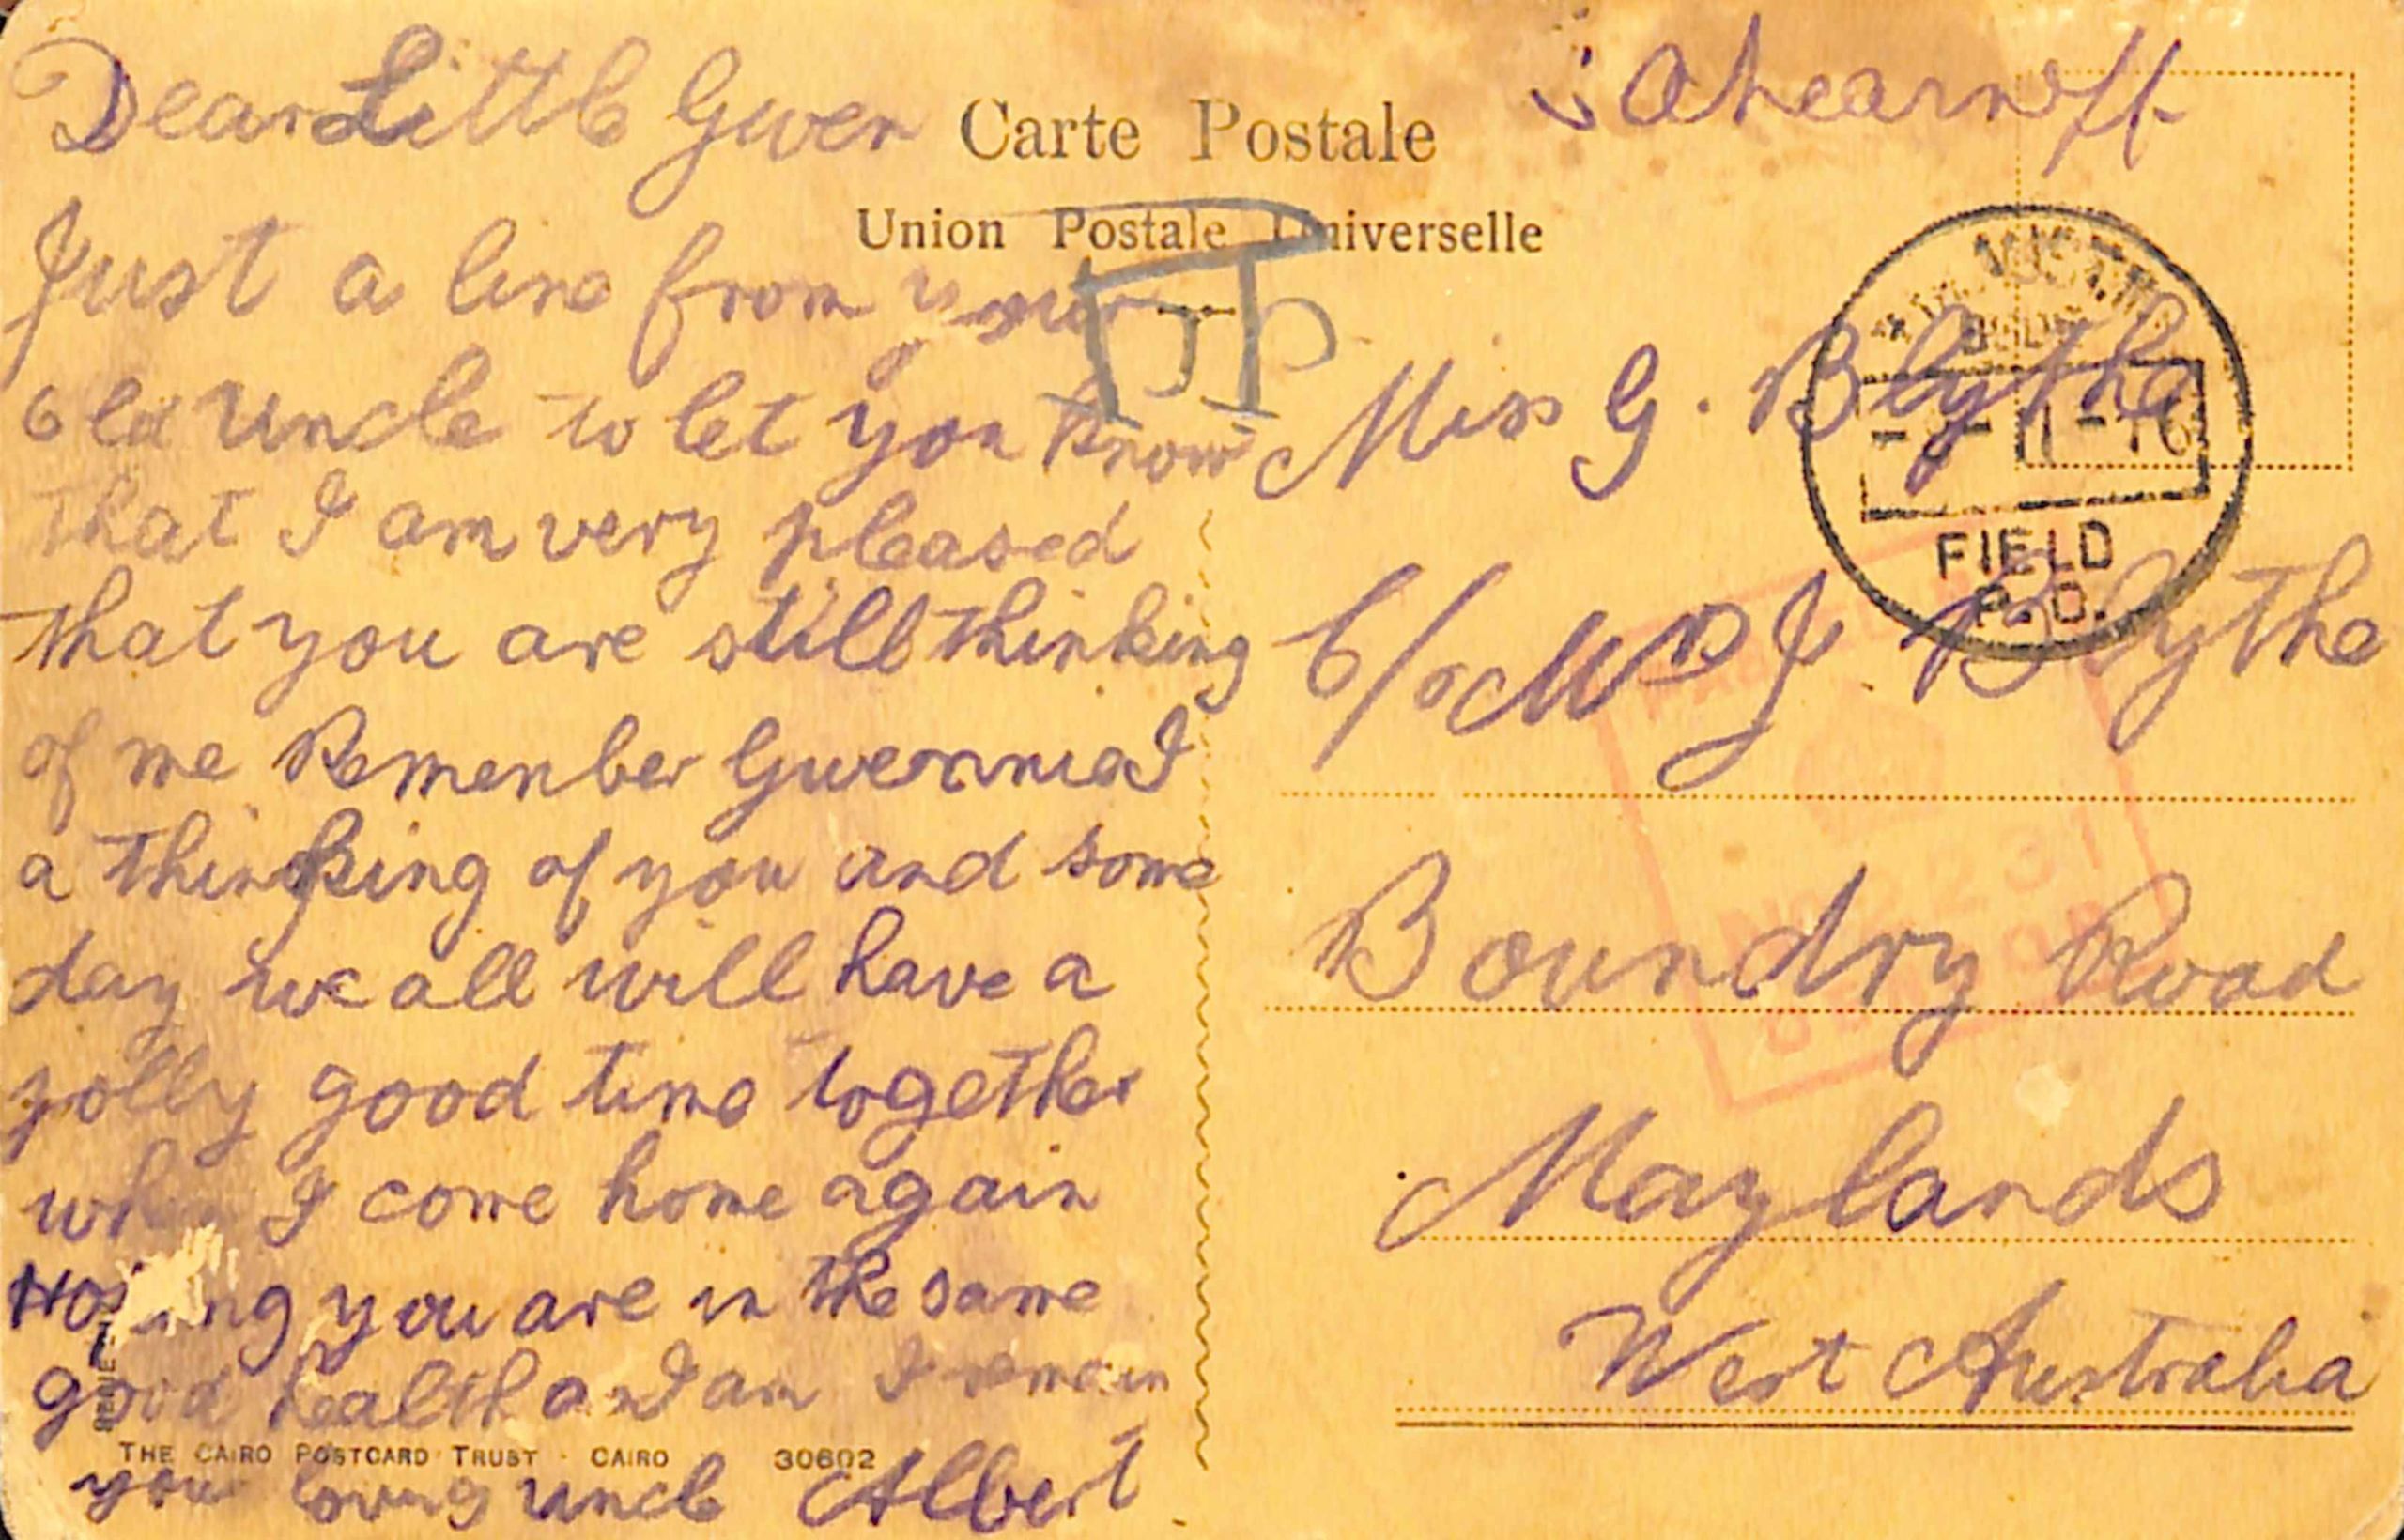 Dear Little Gwen
Just a line from your
old Uncle to let you know
that I am very pleased
that you are still thinking
of me Remember Gwennie I
a thinking of you and some
day we all will have a
jolly good time together
when I come home again
Hoping you are in the same
good health as I am I remain
your loving uncle Albert
THE CAIRO POSTCARD TRUST · CAIRO 30602
Carte Postale
Union Postale Universelle
Miss G. Blythe
C/o Mrs J. Blythe
Boundry Road
Maylands
West Australia
FIELD
P.O.